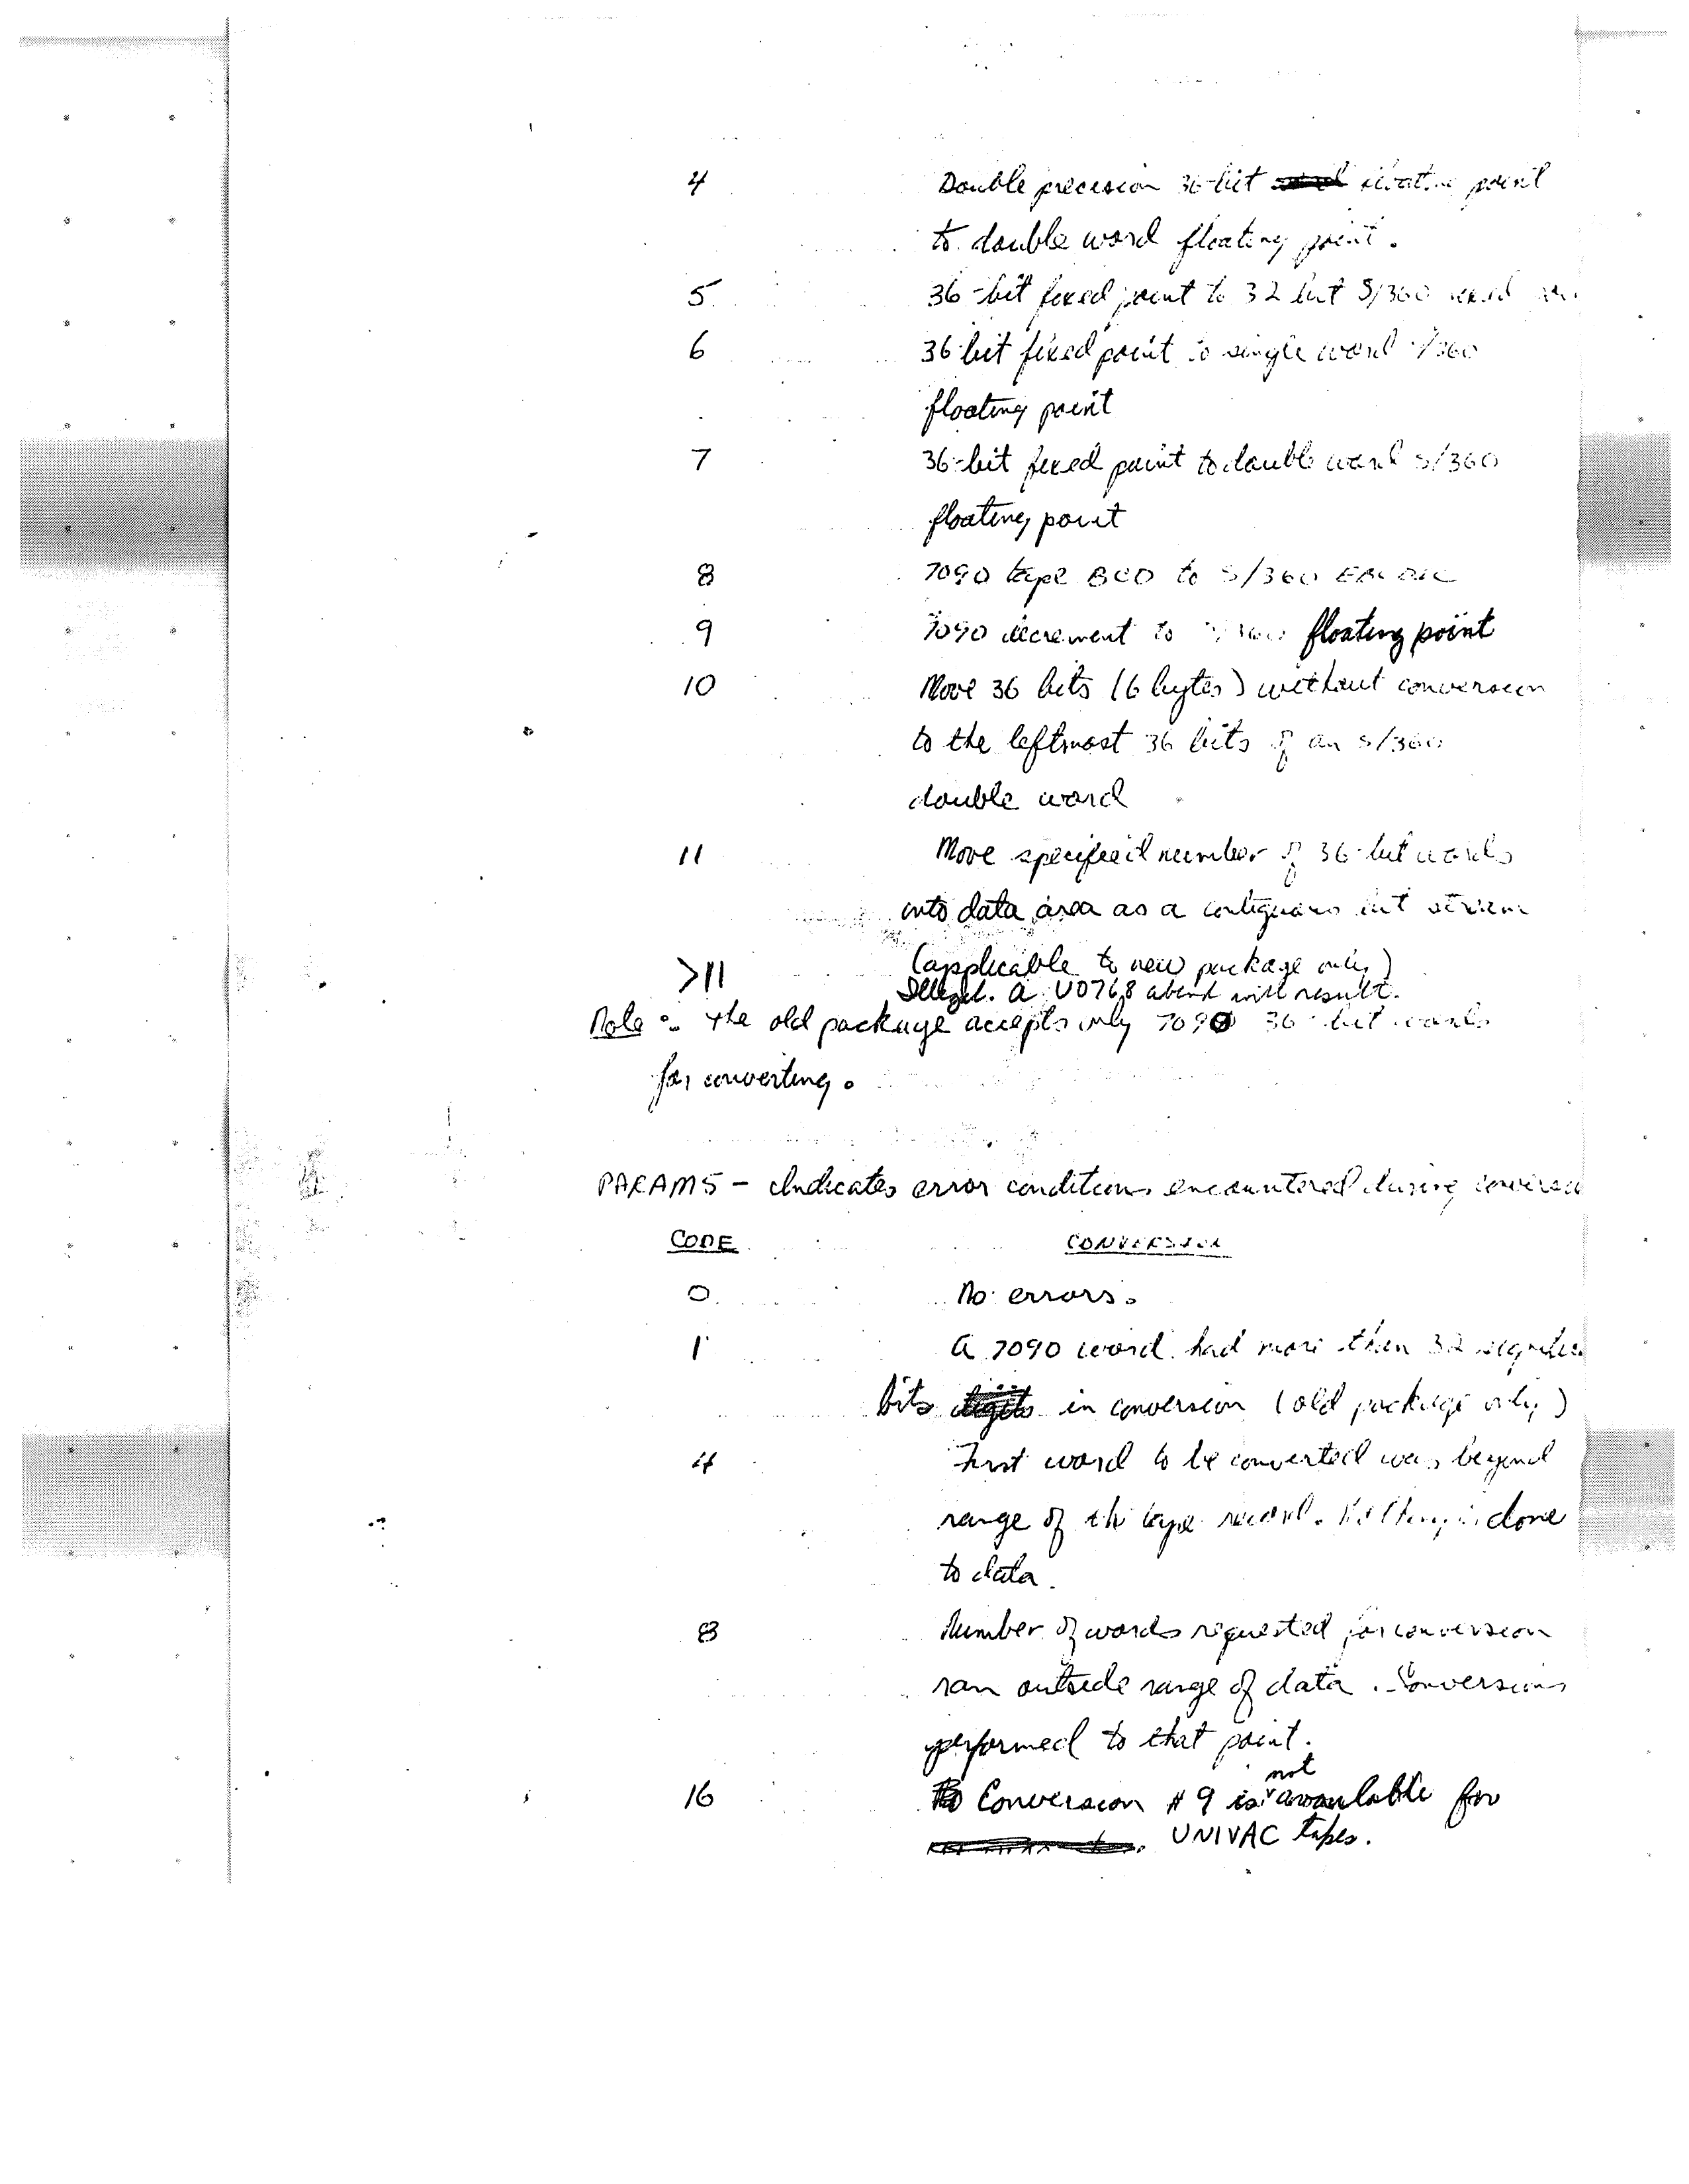 4 Double precision 36-bit floating point
to double word floating point.
5 36-bit fixed point to 32 bit S/360
6 36-bit fixed point to single word S/360
floating point
7 36-bit fixed point to double word S/360
floating point
8 7090 tape BCD to S/360 EBCDIC
9 7090 decrement to S/360 floating point
10 Move 36 bits (6 bytes) without conversion
to the leftmost 36 bits of an S/360
double word
11 Move specified number of 36-bit words
into data area as a contiguous bit stream
(applicable to new package only)
>11 Illegal. A U0768 abend will result.
Note: The old package accepts only 7090 36-bit words
for converting.
PARAM5 - Indicates error conditions encountered during
CODE CONVERSION
0 No errors.
1 A 7090 word had more than 32
bits in conversion (old package only)
4 First word to be converted was beyond
range of the tape record. Nothing is done
to data.
8 Number of words requested for conversion
ran outside range of data. Conversions
performed to that point.
16 Conversion #9 is not available for
UNIVAC tapes.